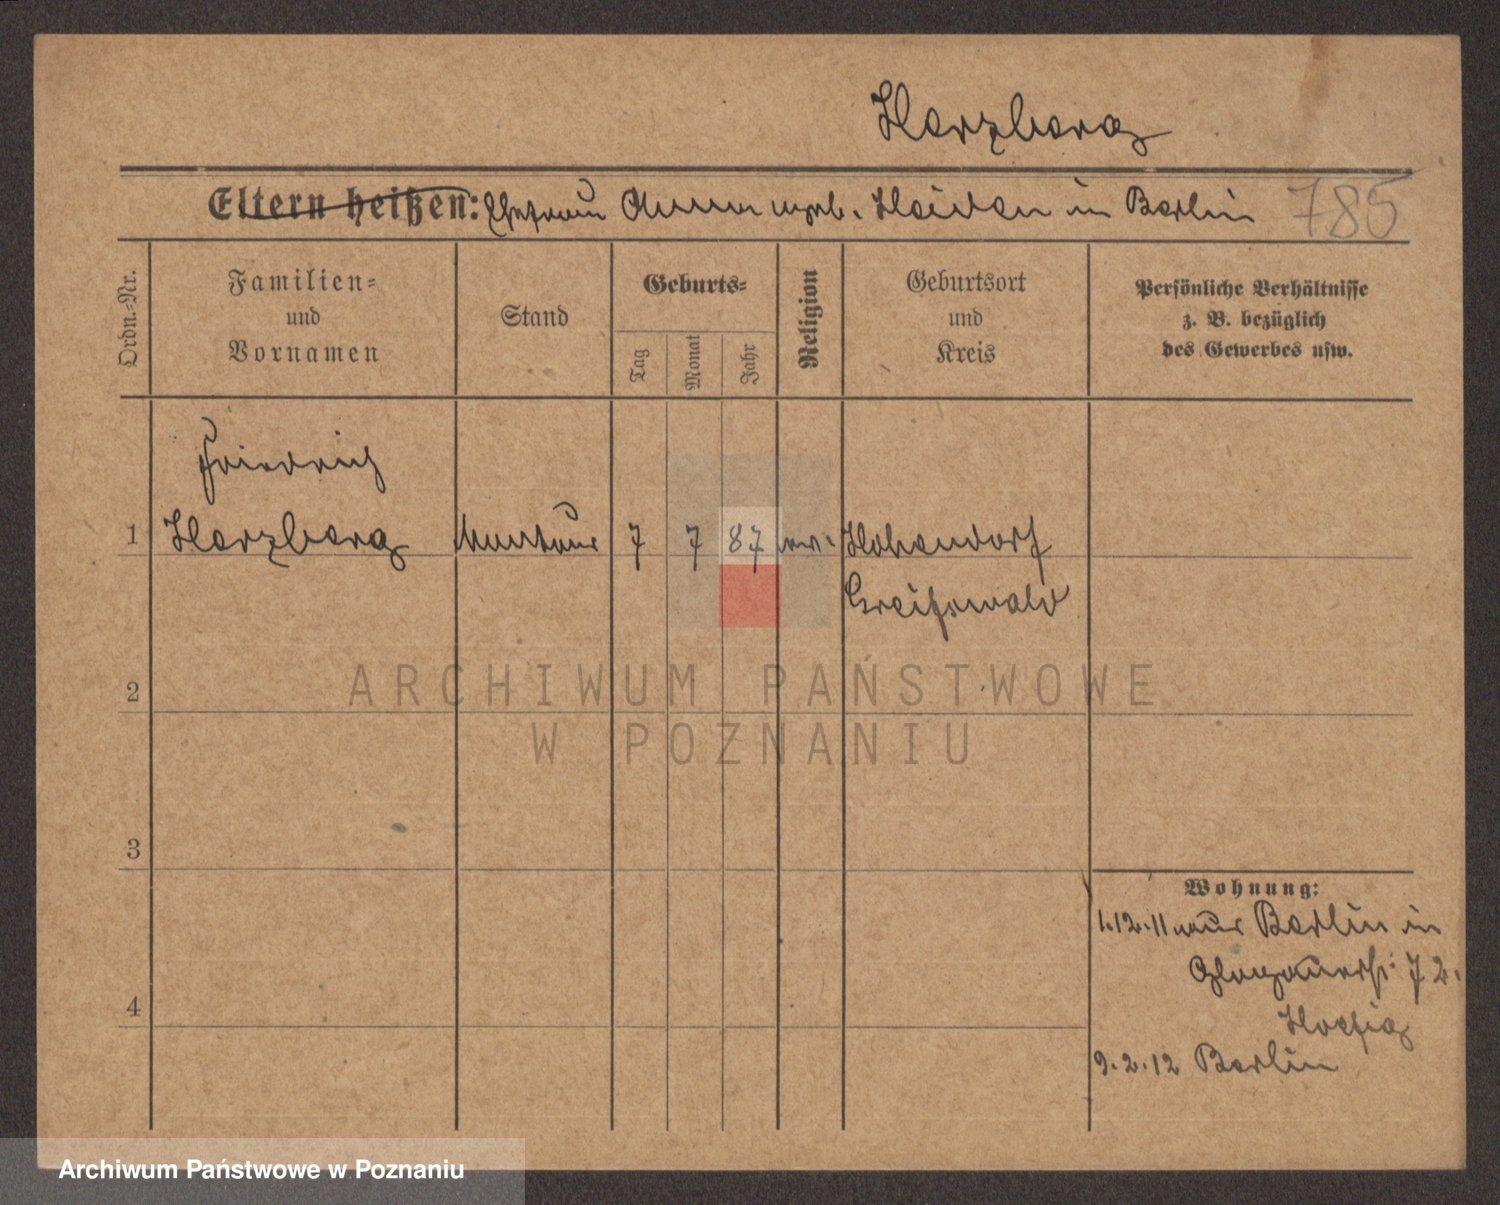 Herzberg
Eltern heißen: Ehefrau Anna geb. Heiden in Berlin 785
Ordn.-Nr.
Familien-
und
Vornamen
Stand
Geburts-
Tag
Monat
Jahr
Religion
Geburtsort
und
Kreis
Persönliche Verhältnisse
z. B. bezüglich
des Gewerbes usw.
Friedrich
1 Herzberg Monteur 7 7 87 ev. Hohendorf
Greifswald
2
3
4
Wohnung:
1.12.11 aus Berlin in
Glogauerstr. 72.
9.2.12 Berlin
ARCHIWUM PAŃSTWOWE
W POZNANIU
Archiwum Państwowe w Poznaniu